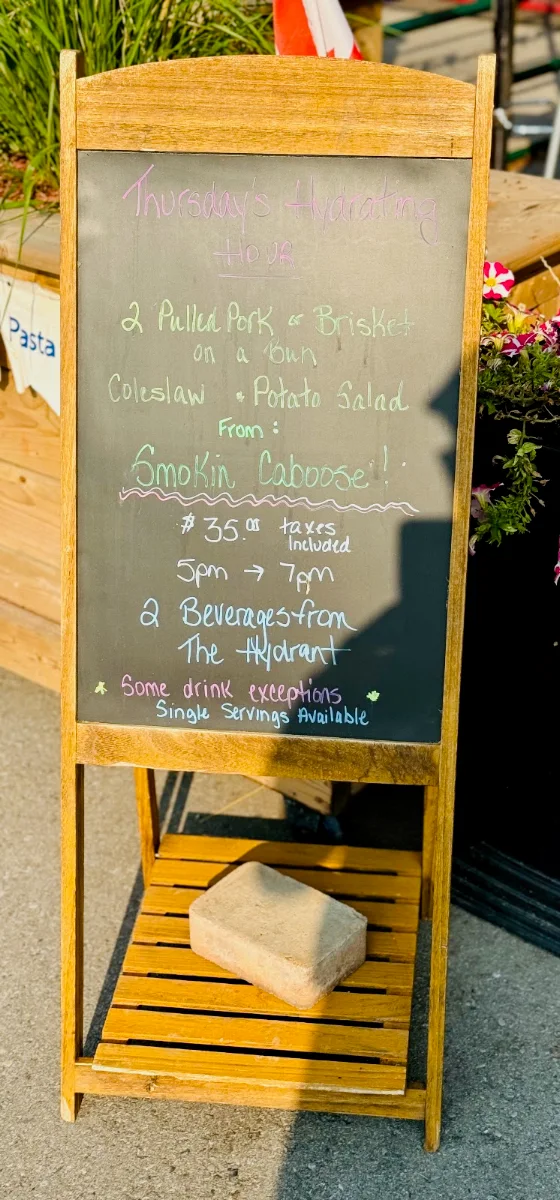 Thursday's Hydrating
Hour
2 Pulled Pork or Brisket
on a bun
Coleslaw + Potato Salad
From:
Smokin Caboose!
$35.00 taxes
Included
5pm → 7pm
2 Beverages from
The Hydrant
Some drink exceptions
Single Servings Available
Pasta